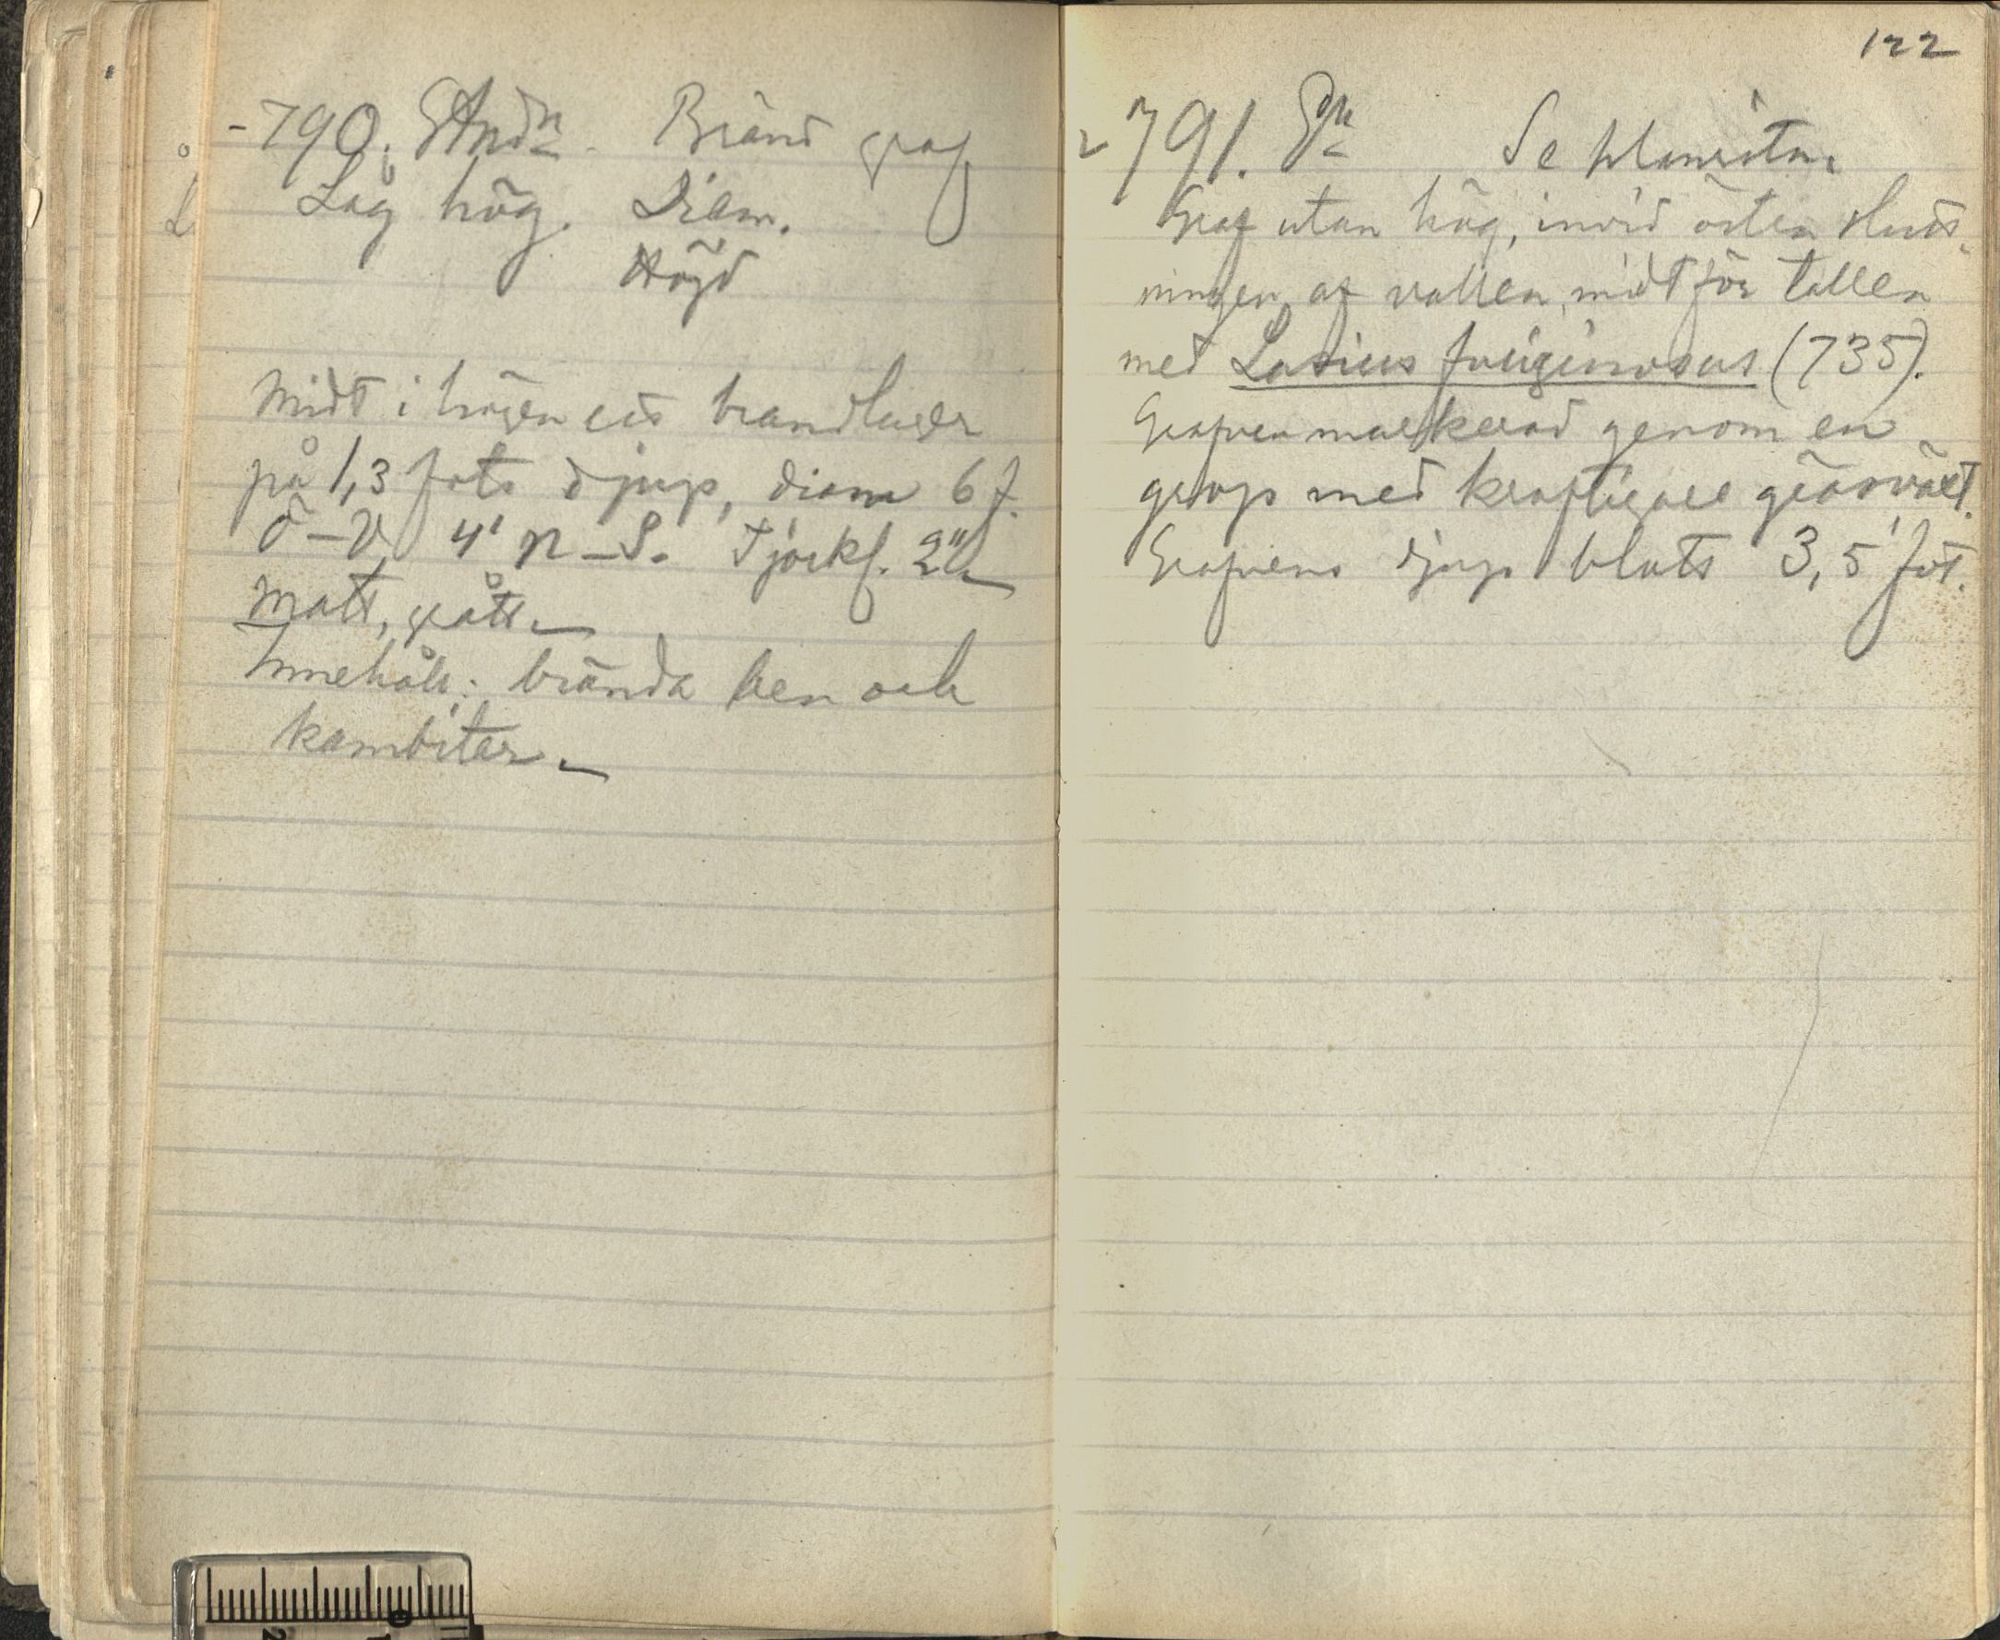 -790. Bränd graf
Låg hög. Diam.
Höjd
Midt i högen ett brandlager
på 1,3 fots djup, diam 6 f.
Ö-V 4' N-S. Tjockl. 2"
matt, grått.
Innehåll: brända ben och
kambitar.
122
791. Se planritn.
Graf utan hög, invid östra sluts-
ningen af vallen, midt för tallen
med Lasius fuliginosus (735).
Grafven markerad genom en
grop med kraftigare gräsväxt.
Grafvens djup blott 3,5 fot.